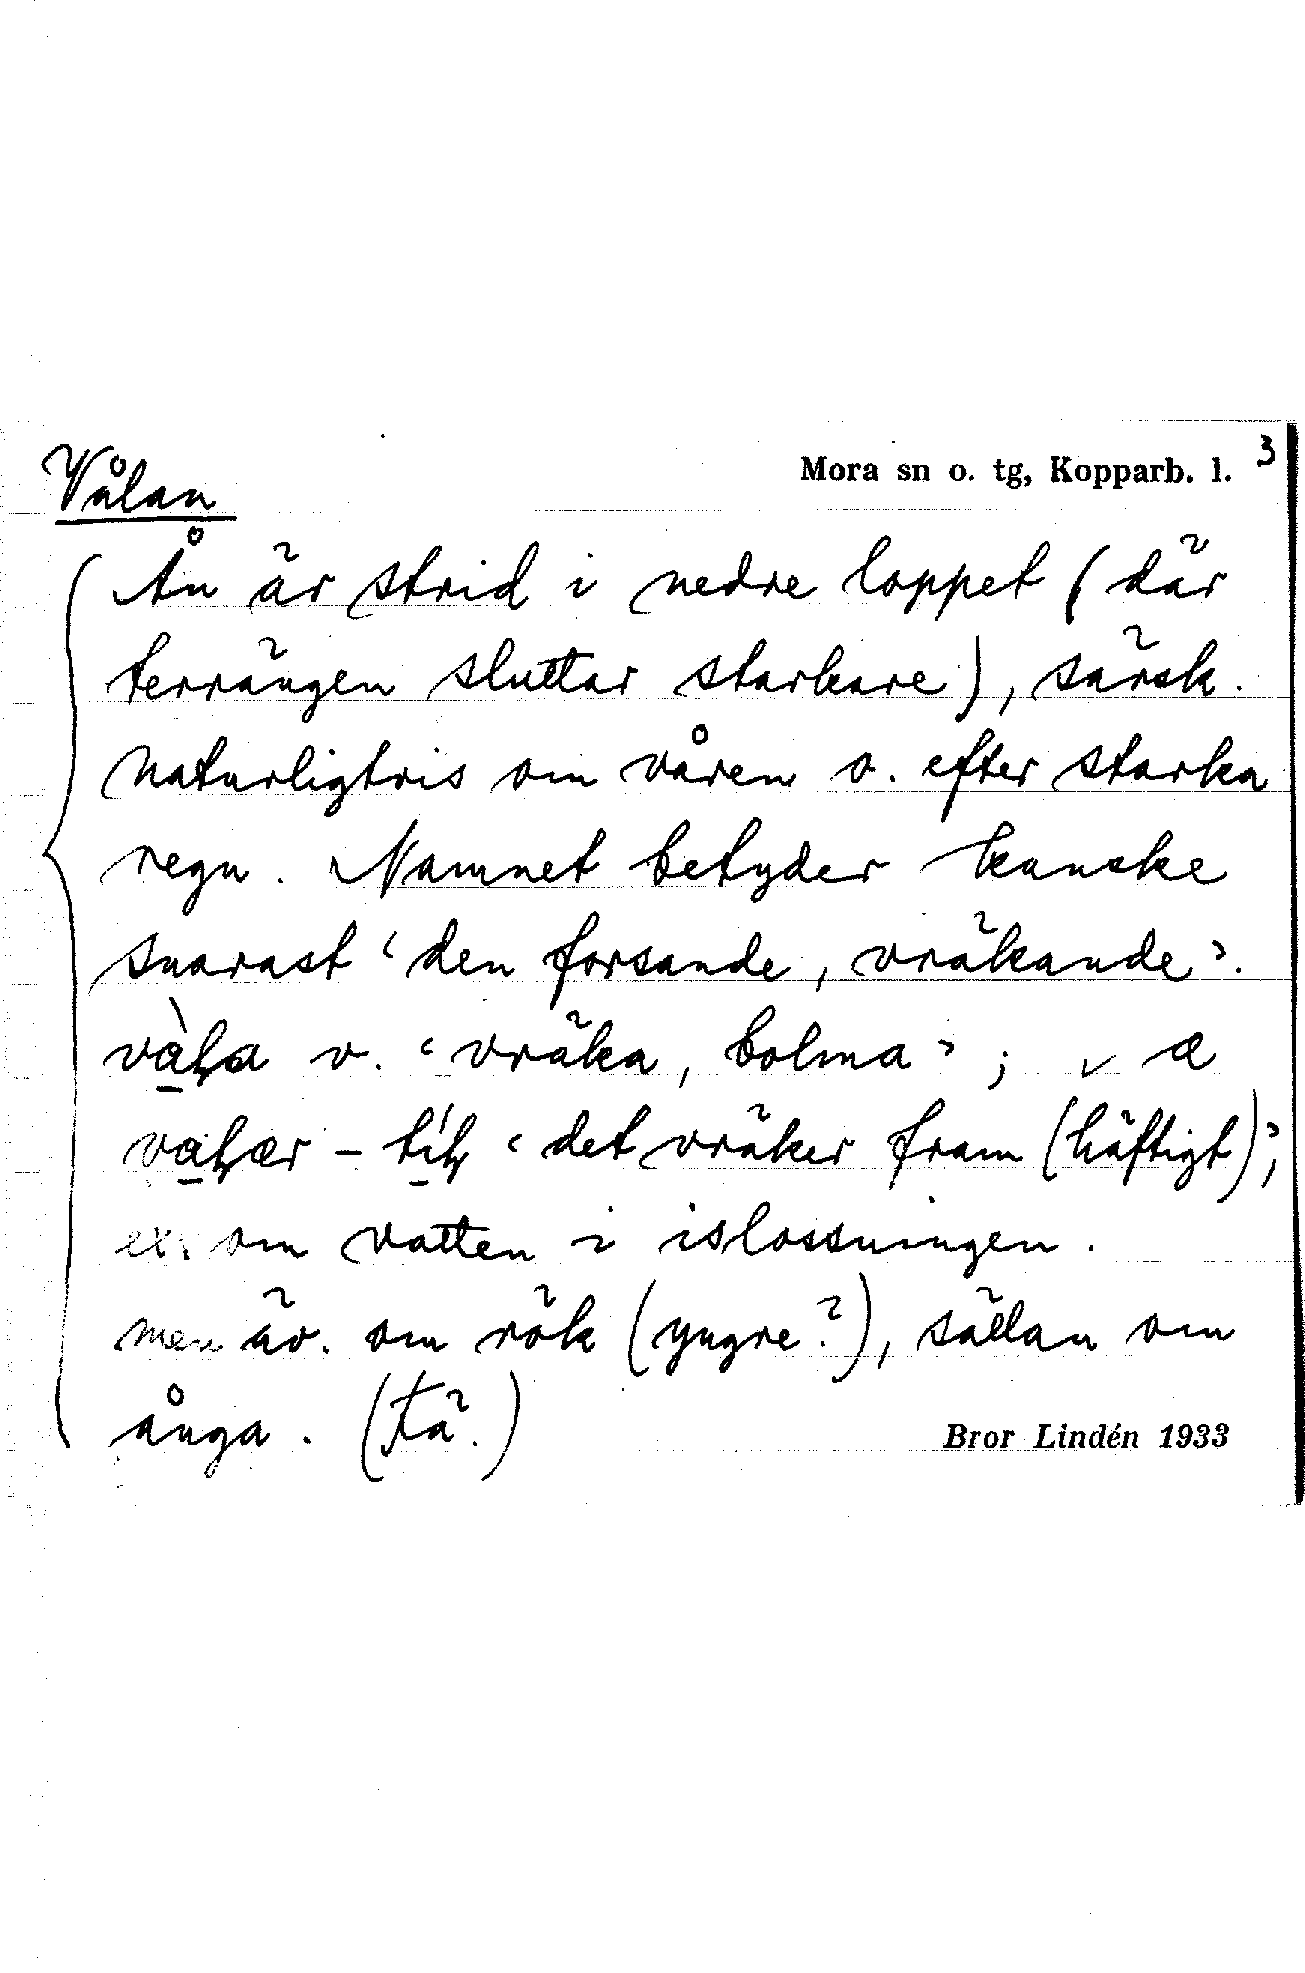 Vålan
Mora sn o. tg, Kopparb. l. 3
Ån är strid i nedre loppet (där
terrängen sluttar starkare), särsk.
naturligtvis om våren o. efter starka
regn. Namnet betyder kanske
snarast ‘den forsande, vräkande’.
v. ‘vräka, bolma’; æ
‘det vräker fram (häftigt)’;
ex. om vatten i islossningen.
men äv. om rök (yngre?), sällan om
ånga.
Bror Lindén 1933